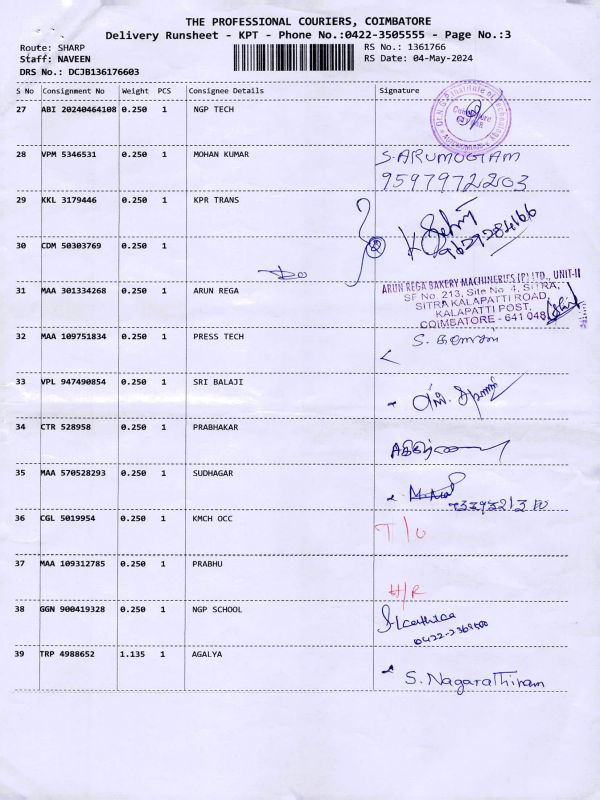 THE PROFESSIONAL COURIERS, COIMBATORE
Delivery Runsheet - KPT - Phone No.:0422-3505555 - Page No.:3
Route: SHARP
RS No.: 1361766
Staff: NAVEEN
RS Date: 04-May-2024
DRS No.: DCJB136176603
S No Consignment No Weight PCS Consignee Details Signature
27 ABI 20240464108 0.250 1 NGP TECH
28 VPM 5346531 0.250 1 MOHAN KUMAR S.ARUMUGAM
9597972203
29 KKL 3179446 0.250 1 KPR TRANS
30 CDM 50303769 0.250 1
31 MAA 301334268 0.250 1 ARUN REGA ARUN REGA BAKERY MACHINERIES (P) LTD., UNIT-II
SF No. 213, Site No. 4, SITRA,
SITRA KALAPATTI ROAD,
KALAPATTI POST,
COIMBATORE - 641 048
32 MAA 109751834 0.250 1 PRESS TECH
33 VPL 947490854 0.250 1 SRI BALAJI
34 CTR 528958 0.250 1 PRABHAKAR
35 MAA 570528293 0.250 1 SUDHAGAR
36 CGL 5019954 0.250 1 KMCH OCC
37 MAA 109312785 0.250 1 PRABHU H/R
38 GGN 900419328 0.250 1 NGP SCHOOL
39 TRP 4988652 1.135 1 AGALYA S. Nagarathinam